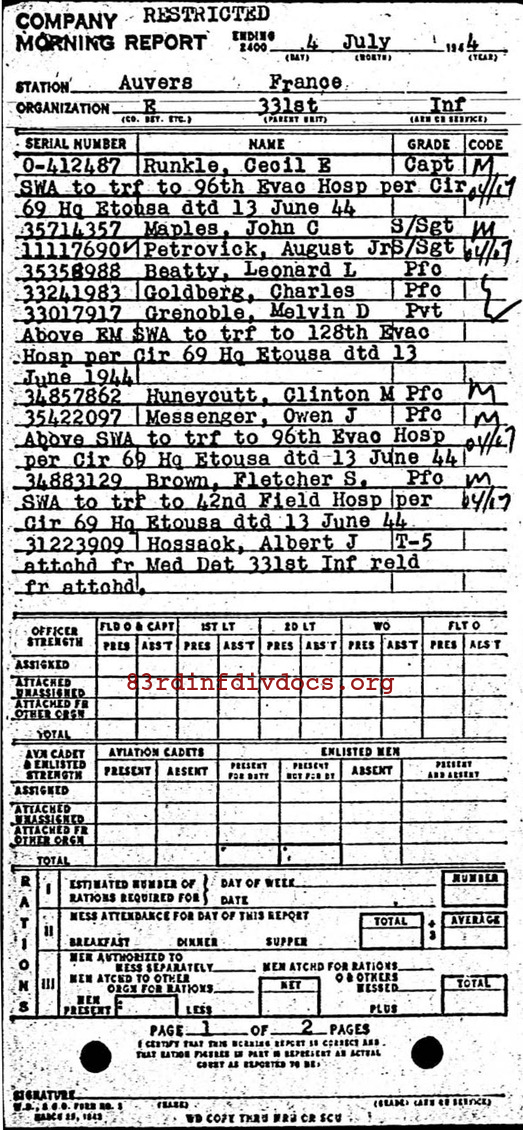 COMPANY RESTRICTED
MORNING REPORT ENDING 2400 4 July 1944
(DAY) (MONTH) (YEAR)
STATION Auvers France
ORGANIZATION E 331st Inf
(CO. DET. ETC.) (PARENT UNIT) (ARM OR SERVICE)
SERIAL NUMBER NAME GRADE CODE
O-412487 Runkle, Cecil E Capt M
SWA to trf to 96th Evac Hosp per Cir 04/17
69 Hq Etousa dtd 13 June 44
35714357 Maples, John C S/Sgt M
11117690 Petrovick, August Jr S/Sgt 04/17
35358988 Beatty, Leonard L Pfc
33241983 Goldberg, Charles Pfc
33017917 Grenoble, Melvin D Pvt
Above EM SWA to trf to 128th Evac
Hosp per Cir 69 Hq Etousa dtd 13
June 1944
34857862 Huneycutt, Clinton M Pfc M
35422097 Messenger, Owen J Pfc M
Above SWA to trf to 96th Evac Hosp 04/17
per Cir 69 Hq Etousa dtd 13 June 44
34883129 Brown, Fletcher S. Pfc M
SWA to trf to 42nd Field Hosp per 04/17
Cir 69 Hq Etousa dtd 13 June 44
31223909 Hossack, Albert J T-5
attchd fr Med Det 331st Inf reld
fr attchd.
OFFICER STRENGTH FLD O & CAPT 1ST LT 2D LT WO FLT O
PRES ABS'T PRES ABS'T PRES ABS'T PRES ABS'T PRES ABS'T
ASSIGNED
ATTACHED UNASSIGNED
83rdinfdivdocs.org
ATTACHED FR OTHER ORGN
TOTAL
AVN CADET & ENLISTED STRENGTH AVIATION CADETS ENLISTED MEN
PRESENT ABSENT PRESENT FOR DUTY PRESENT NOT FOR DY ABSENT PRESENT AND ABSENT
ASSIGNED
ATTACHED UNASSIGNED
ATTACHED FR OTHER ORGN
TOTAL
RATIONS
I ESTIMATED NUMBER OF RATIONS REQUIRED FOR DAY OF WEEK DATE NUMBER
II MESS ATTENDANCE FOR DAY OF THIS REPORT TOTAL ÷ 3 AVERAGE
BREAKFAST DINNER SUPPER
III MEN AUTHORIZED TO MESS SEPARATELY MEN ATCHD FOR RATIONS
MEN ATCHD TO OTHER ORGN FOR RATIONS NET & OTHERS MESSED TOTAL
MEN PRESENT LESS PLUS
PAGE 1 OF 2 PAGES
I CERTIFY THAT THIS MORNING REPORT IS CORRECT AND
THAT RATION FIGURES IN PART III REPRESENT AN ACTUAL
COUNT AS REPORTED TO ME.
SIGNATURE
W.D., A.G.O. FORM NO. 1 (NAME) (GRADE) (ARM OR SERVICE)
MARCH 25, 1943 WD COPY THRU MRU OR SCU